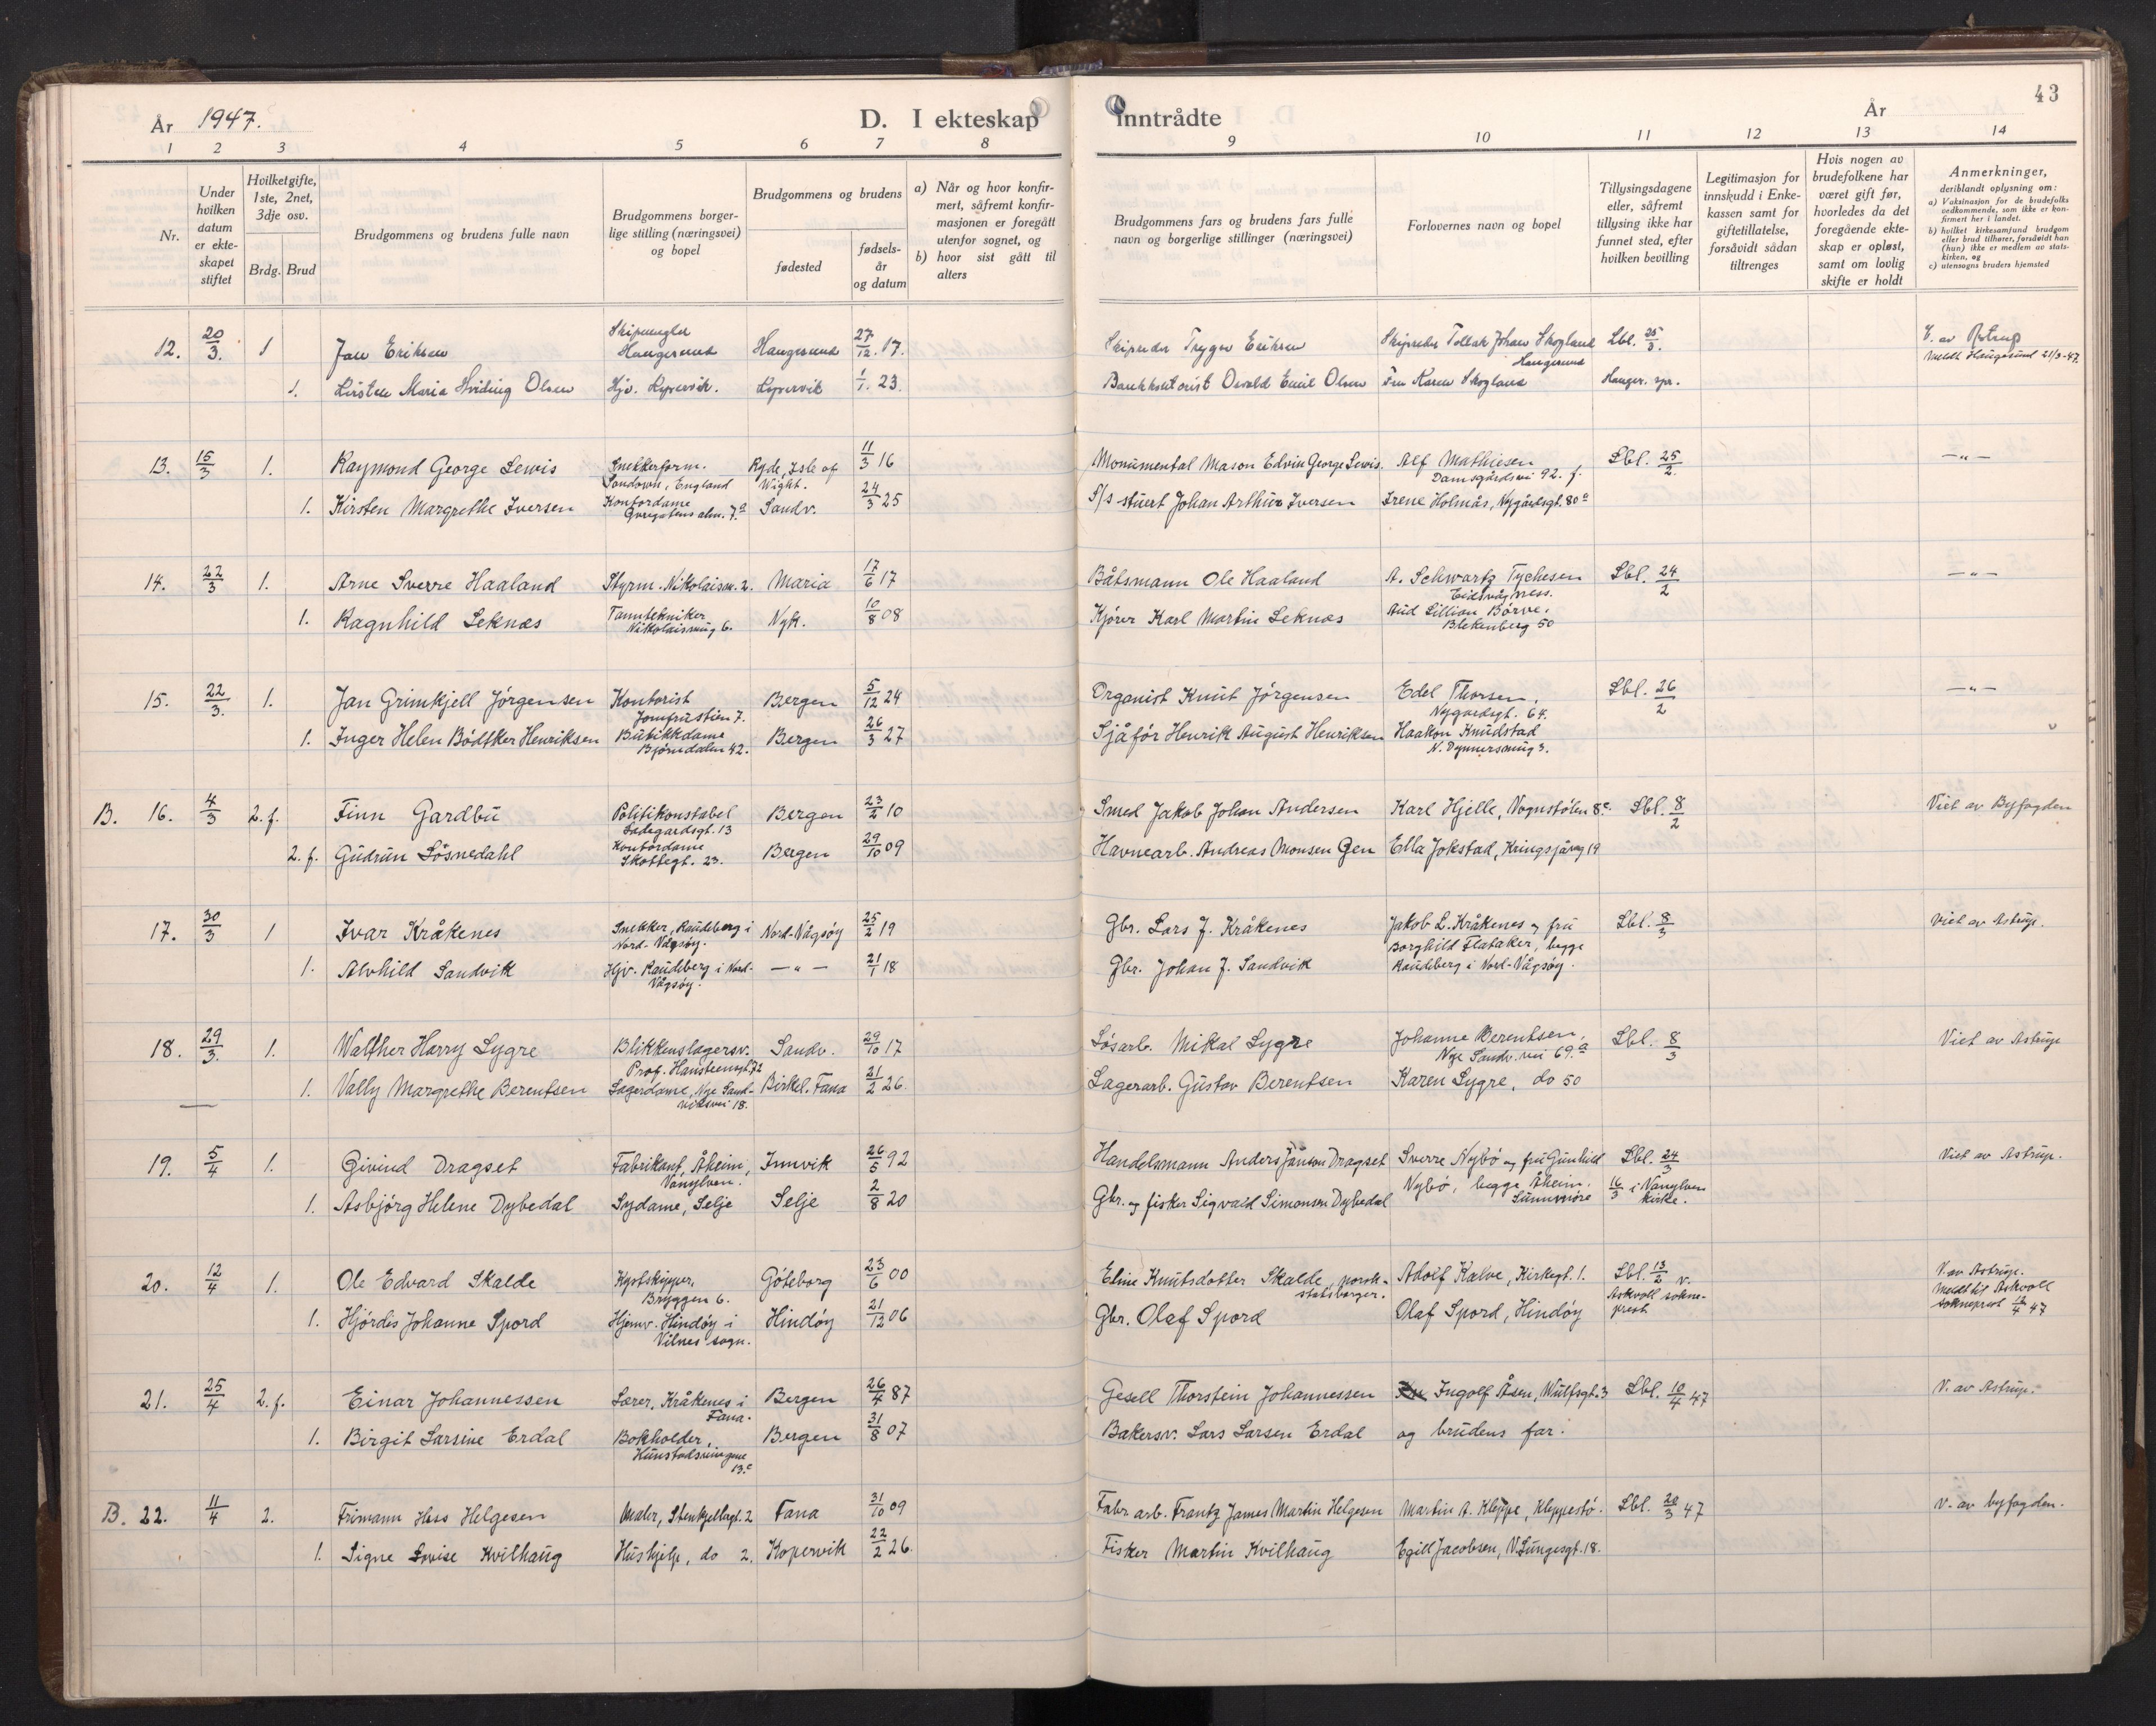 År 1947.
D. I ekteskap
inntrådte
År
43
1 2 3 4 5 6 7 8
9 10 11 12 13 14
Nr.
Under hvilken datum er ekte-skapet stiftet
Hvilket gifte, 1ste, 2net, 3dje osv.
Brdg. Brud
Brudgommens og brudens fulle navn
Brudgommens borger-lige stilling (næringsvei) og bopel
Brudgommens og brudens
fødested
fødsels-år og datum
a) Når og hvor konfir-mert, såfremt konfir-masjonen er foregått utenfor sognet, og
b) hvor sist gått til alters
Brudgommens fars og brudens fars fulle navn og borgerlige stillinger (næringsvei)
Forlovernes navn og bopel
Tillysingsdagene eller, såfremt tillysing ikke har funnet sted, efter hvilken bevilling
Legitimasjon for innskudd i Enke-kassen samt for giftetillatelse, forsåvidt sådan tiltrenges
Hvis nogen av brudefolkene har været gift før, hvorledes da det foregående ekte-skap er opløst, samt om lovlig skifte er holdt
Anmerkninger,
deriblandt oplysning om:
a) Vaksinasjon for de brudefolks vedkommende, som ikke er kon-firmert her i landet.
b) hvilket kirkesamfund brudgom eller brud tilhører, forsåvidt han (hun) ikke er medlem av stats-kirken, og
c) utensogns bruders hjemsted
12. 20/3. 1 Jan Eriksen Haugesund Haugesund 27/12. 17. Skipsreder Trygve Eriksen Skipsreder Tollak Johan Skogland Haugesund Lbl. 25/3. V. av Astrup Meldt Haugesund 21/3-47.
1. Kirsten Maria Hviding Olsen Hjv. Kopervik. Kopervik 1/1. 23. Bankkasserer Osvald Emil Olsen Fru Karen Skogland Hauges. spr.
13. 15/3 1. Raymond George Lewis Snekkerform. Sandown, England Ryde, Isle of Wight. 11/3 16 Monumental Mason Edvin George Lewis. Alf Mathiesen Damsgårdsvei 92. f. Lbl. 25/2. —"—
1. Kirsten Margrethe Iversen Kontordame alm. 7.a Sandv. 24/3 25 S/s stuert Johan Arthur Iversen Irene Holmås, Nygårdsgt. 80a
14. 22/3 1. Arne Sverre Haaland Styrm. Nikolaism. 2. Maria 17/6 17 Båtsmann Ole Haaland A. Schwartz Tychesen Eidsvågness. Lbl. 24/2 —"—
1. Ragnhild Seknæs Tanntekniker Nikolaismug 6. Nyk. 10/8 08 Kjører Karl Martin Seknæs Aud Lillian Børve. Blekenberg 50
15. 22/3. 1. Jan Grimkjell Jørgensen Kontorist Jomfrustien 7. Bergen 5/12 24 Organist Knut Jørgensen Edel Thorsen, Nygardsgt. 64. Lbl. 26/2 —"—
1. Inger Helen Bødtker Henriksen Butikkdame Bjørndalen 42. Bergen 26/3 27 Sjåfør Henrik August Henriksen Haakon Knudstad N. Dynnersmug 3.
B. 16. 4/3 2. f. Finn Gardbu Politikonstabel Ladegardsgt. 13 Bergen 23/2 10 Smed Jakob Johan Andersen Karl Hjelle, Vognstølen 8c. Lbl. 8/2 Viet av Byfogden
2. f. Gudrun Søsnedahl Kontordame Skottegt. 23. Bergen 29/10 09 Havnearb. Andreas Monsen Gen Ella Jokstad, Kringsjåveg 19
17. 30/3 1 Ivar Kråkenes Snekker, Raudeberg i Nord-Vågsøy. Nord-Vågsøy 25/2 19 Gbr. Lars J. Kråkenes Jakob L. Kråkenes og fru Lbl. 8/3 Viet av Astrup.
1. Alvhild Sandvik Hjv. Raudeberg i Nord-Vågsøy. —"— 21/1 18 Gbr. Johan J. Sandvik Borghild Flataker, begge Raudeberg i Nord-Vågsøy.
18. 29/3. 1. Walther Harry Lygre Blikkenslagersv. Prof. Hansteensgt. 72 Sandv. 29/10 17 Løsarb. Mikal Lygre Johanne Berentsen, Nye Sandv. vei 69.a Lbl. 8/3 Viet av Astrup
1. Vally Margrethe Berentsen Lagerdame, Nye Sandviksvei 18. Birkel. Fana 21/2 26. Lagerarb. Gustav Berentsen Karen Lygre, do 50
19. 5/4 1. Givind Dragset Fabrikant, Åheim, Vanylven. Innvik 26/5 92 Handelsmann Anders Jånson Dragset Sverre Nybø og fru Gunhild Lbl. 24/3 Viet av Astrup.
1. Asbjørg Helene Dybedal Sydame, Selje Selje 2/8 20 Gbr. og fisker Sigvald Simonson Dybedal Nybø, begge Åheim. Sunnmøre 16/3 i Vanylven kirke.
20. 12/4 1. Ole Edvard Skalde Kystskipper, Bryggen 6. Göteborg 23/6 00 Eline Knutsdotter Skalde, norsk statsborger. Adolf Kalve, Kirkegt. 1. Lbl. 13/2 v. Askvoll sokneprest V. av Astrup. Meldt til Askvoll sokneprest 12/4 47
1. Hjørdis Johanne Spord Hjemv. Hindøy i Vilnes sogn. Hindøy 21/12 06 Gbr. Olaf Spord Olaf Spord, Hindøy
21. 25/4 2. f. Einar Johannessen Lærer, Kråkenes i Fana. Bergen 26/4 87 Gesell Thorstein Johannessen Ingolf Åsen, Wulfsgt. 3 Lbl. 10/4 47 V. av Astrup.
1. Birgit Larsine Erdal Bokholder, 13.c Bergen 31/8 07 Bakersv. Lars Larsen Erdal og brudens far.
B. 22. 11/4 2. Frimann Hess Helgesen Maler, Stenkjellergt. 2 Fana 31/10 09 Fabr. arb. Frantz James Martin Helgesen Martin A. Kleppe, Kleppestø. Lbl. 20/3 47 V. av byfogden.
1. Signe Lovise Kvilhaug Hushjelp, do 2. Kopervik 22/2 26. Fisker Martin Kvilhaug Egill Jacobsen, V. Lungesgt. 18.